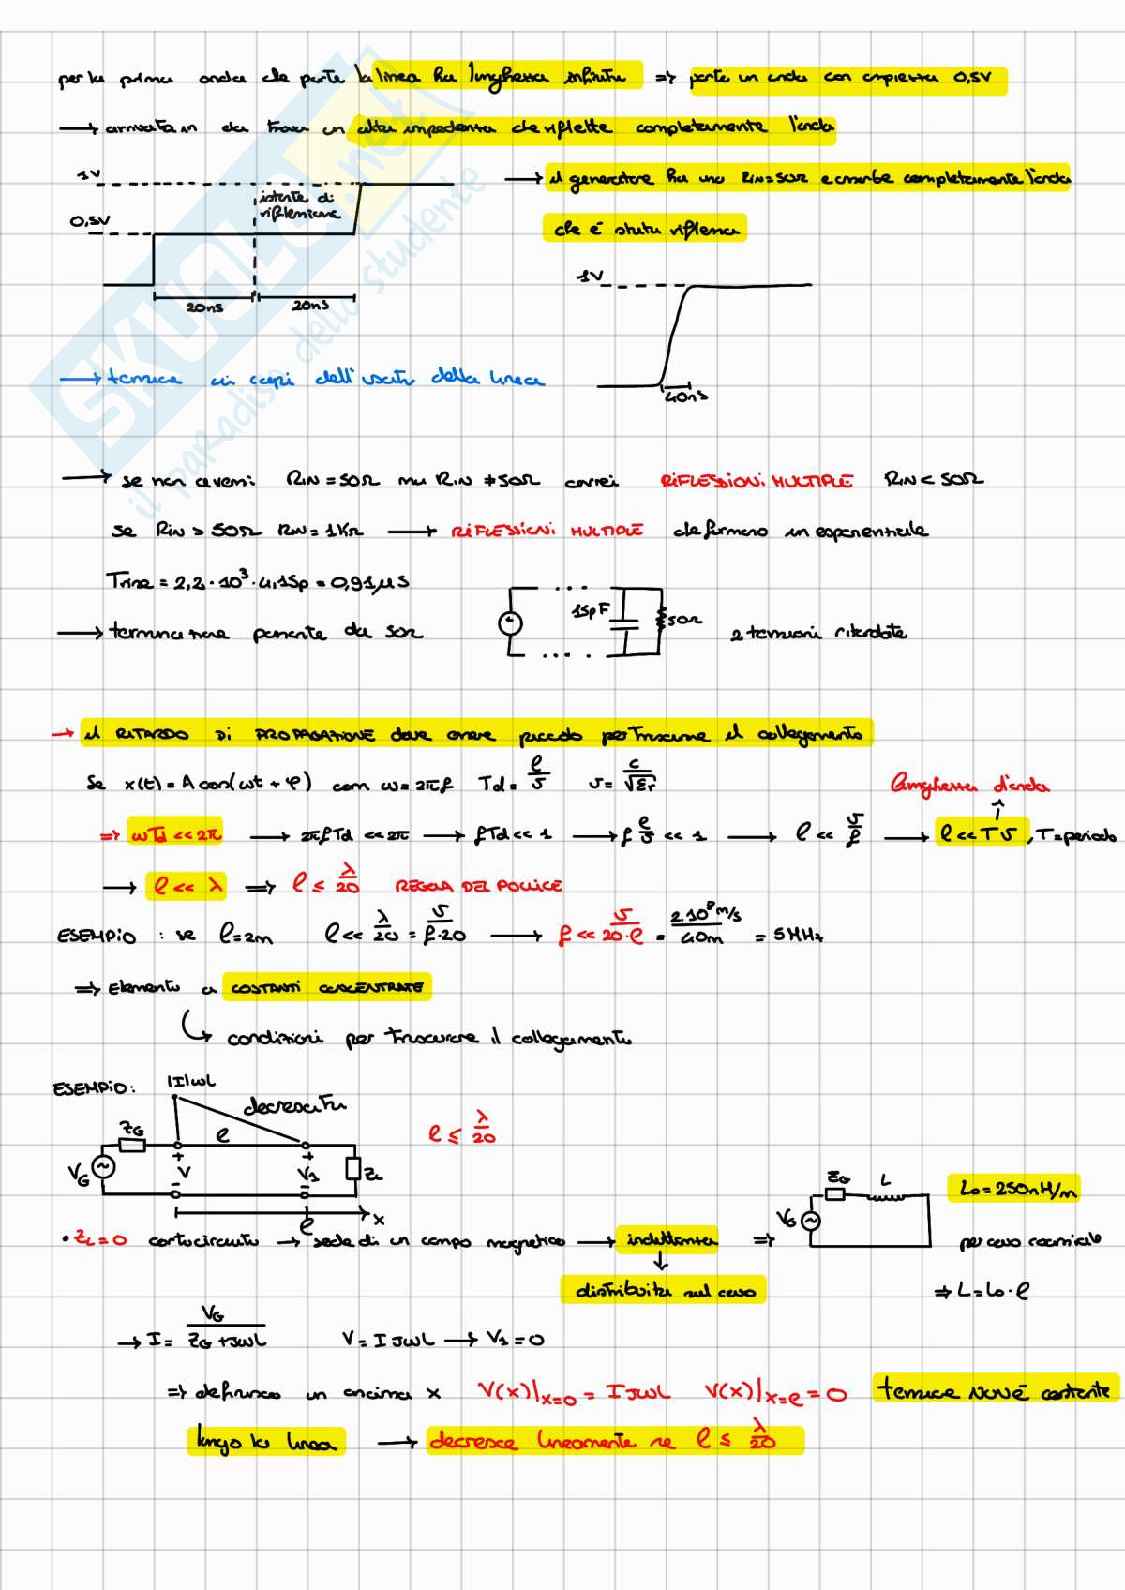 per la prima onda che parte la linea ha lunghezza infinita => parte un onda con ampiezza 0,5V
→ arrivata in da trova un alta impedenza che riflette completamente l'onda
1V
istante di riflessione
0,5V
20ns 20ns
→ il generatore ha una RIN=50Ω e assorbe completamente l'onda
che è stata riflessa
1V
40ns
→ tensione ai capi dell'uscita della linea
→ se non avessi RIN=50Ω ma RIN ≠50Ω avrei RIFLESSIONI MULTIPLE RIN<50Ω
se RIN > 50Ω RIN=1KΩ → RIFLESSIONI MULTIPLE che formano un esponenziale
Trise = 2,2·10³·415p = 0,91μs
→ terminazione passante da 50Ω
15pF 50Ω
2 tensioni ritardate
→ il RITARDO DI PROPAGAZIONE deve essere piccolo per trascurare il collegamento
Se x(t)=A cos(ωt+φ) con ω=2πf Td=ℓ/v v=c/√εr
lunghezza d'onda
=> ωTd<<2π → 2πfTd<<2π → fTd<<1 → f ℓ/v <<1 → ℓ << v/f → ℓ<<Tv, T=periodo
→ ℓ<<λ => ℓ ≤ λ/20 REGOLA DEL POLLICE
ESEMPIO: se ℓ=2m ℓ<< λ/20 = v/f·20 → f<< v/20·ℓ = 2 10⁸ m/s / 40m = 5MHz
=> Elemento a COSTANTI CONCENTRATE
↳ condizioni per trascurare il collegamento
ESEMPIO:
|I|ωL
decrescita
ZG ℓ
VG + V - + V1 - ZL
ℓ x
ℓ ≤ λ/20
ZG L
VG
L0=250nH/m
• ZL=0 cortocircuito → sede di un campo magnetico → induttanza => per cavo coassiale
↓
distribuita sul cavo => L=L0·ℓ
→ I= VG/ZG+jωL V=I jωL → V1=0
=> definisco un ascissa x V(x)|x=0 = I jωL V(x)|x=ℓ = 0 tensione NON È costante
lungo la linea → decresce linearmente se ℓ ≤ λ/20